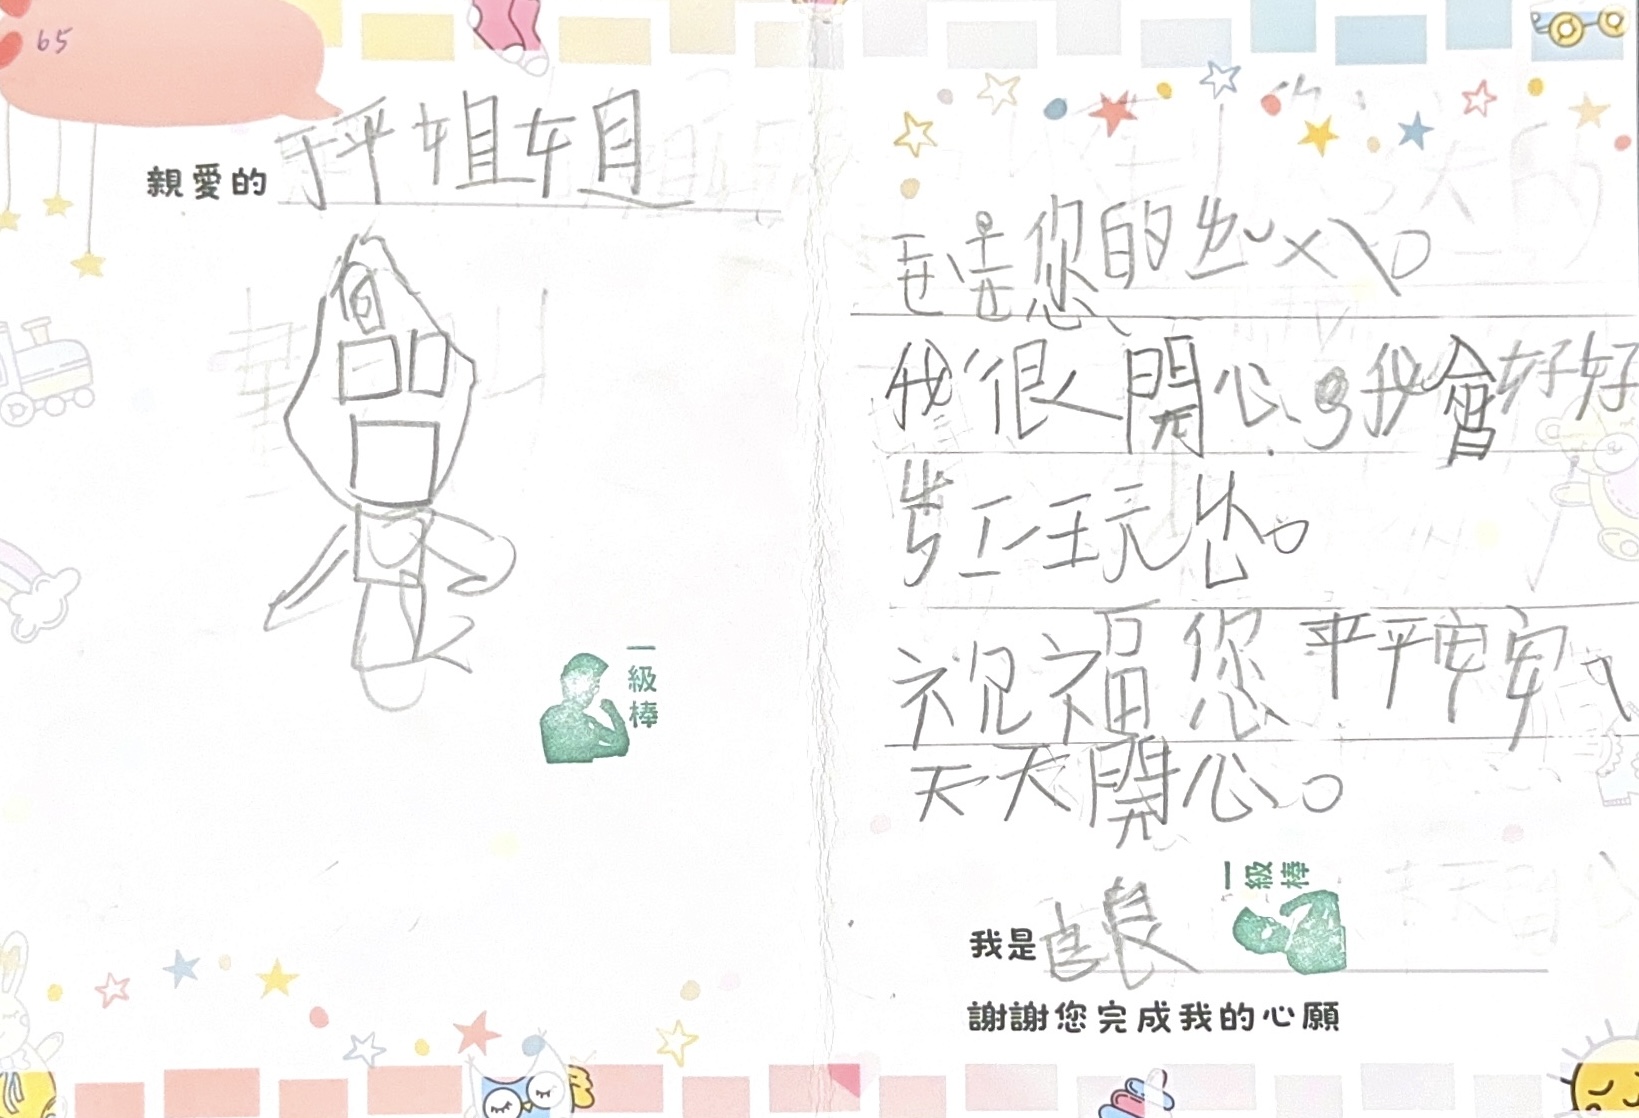 65
親愛的 玶姐姐
您的ㄌㄧˇㄨˋ。
我很開心,我會好好
玩。
祝福您平平安安、
天天開心。
一級棒
一級棒
我是
謝謝您完成我的心願